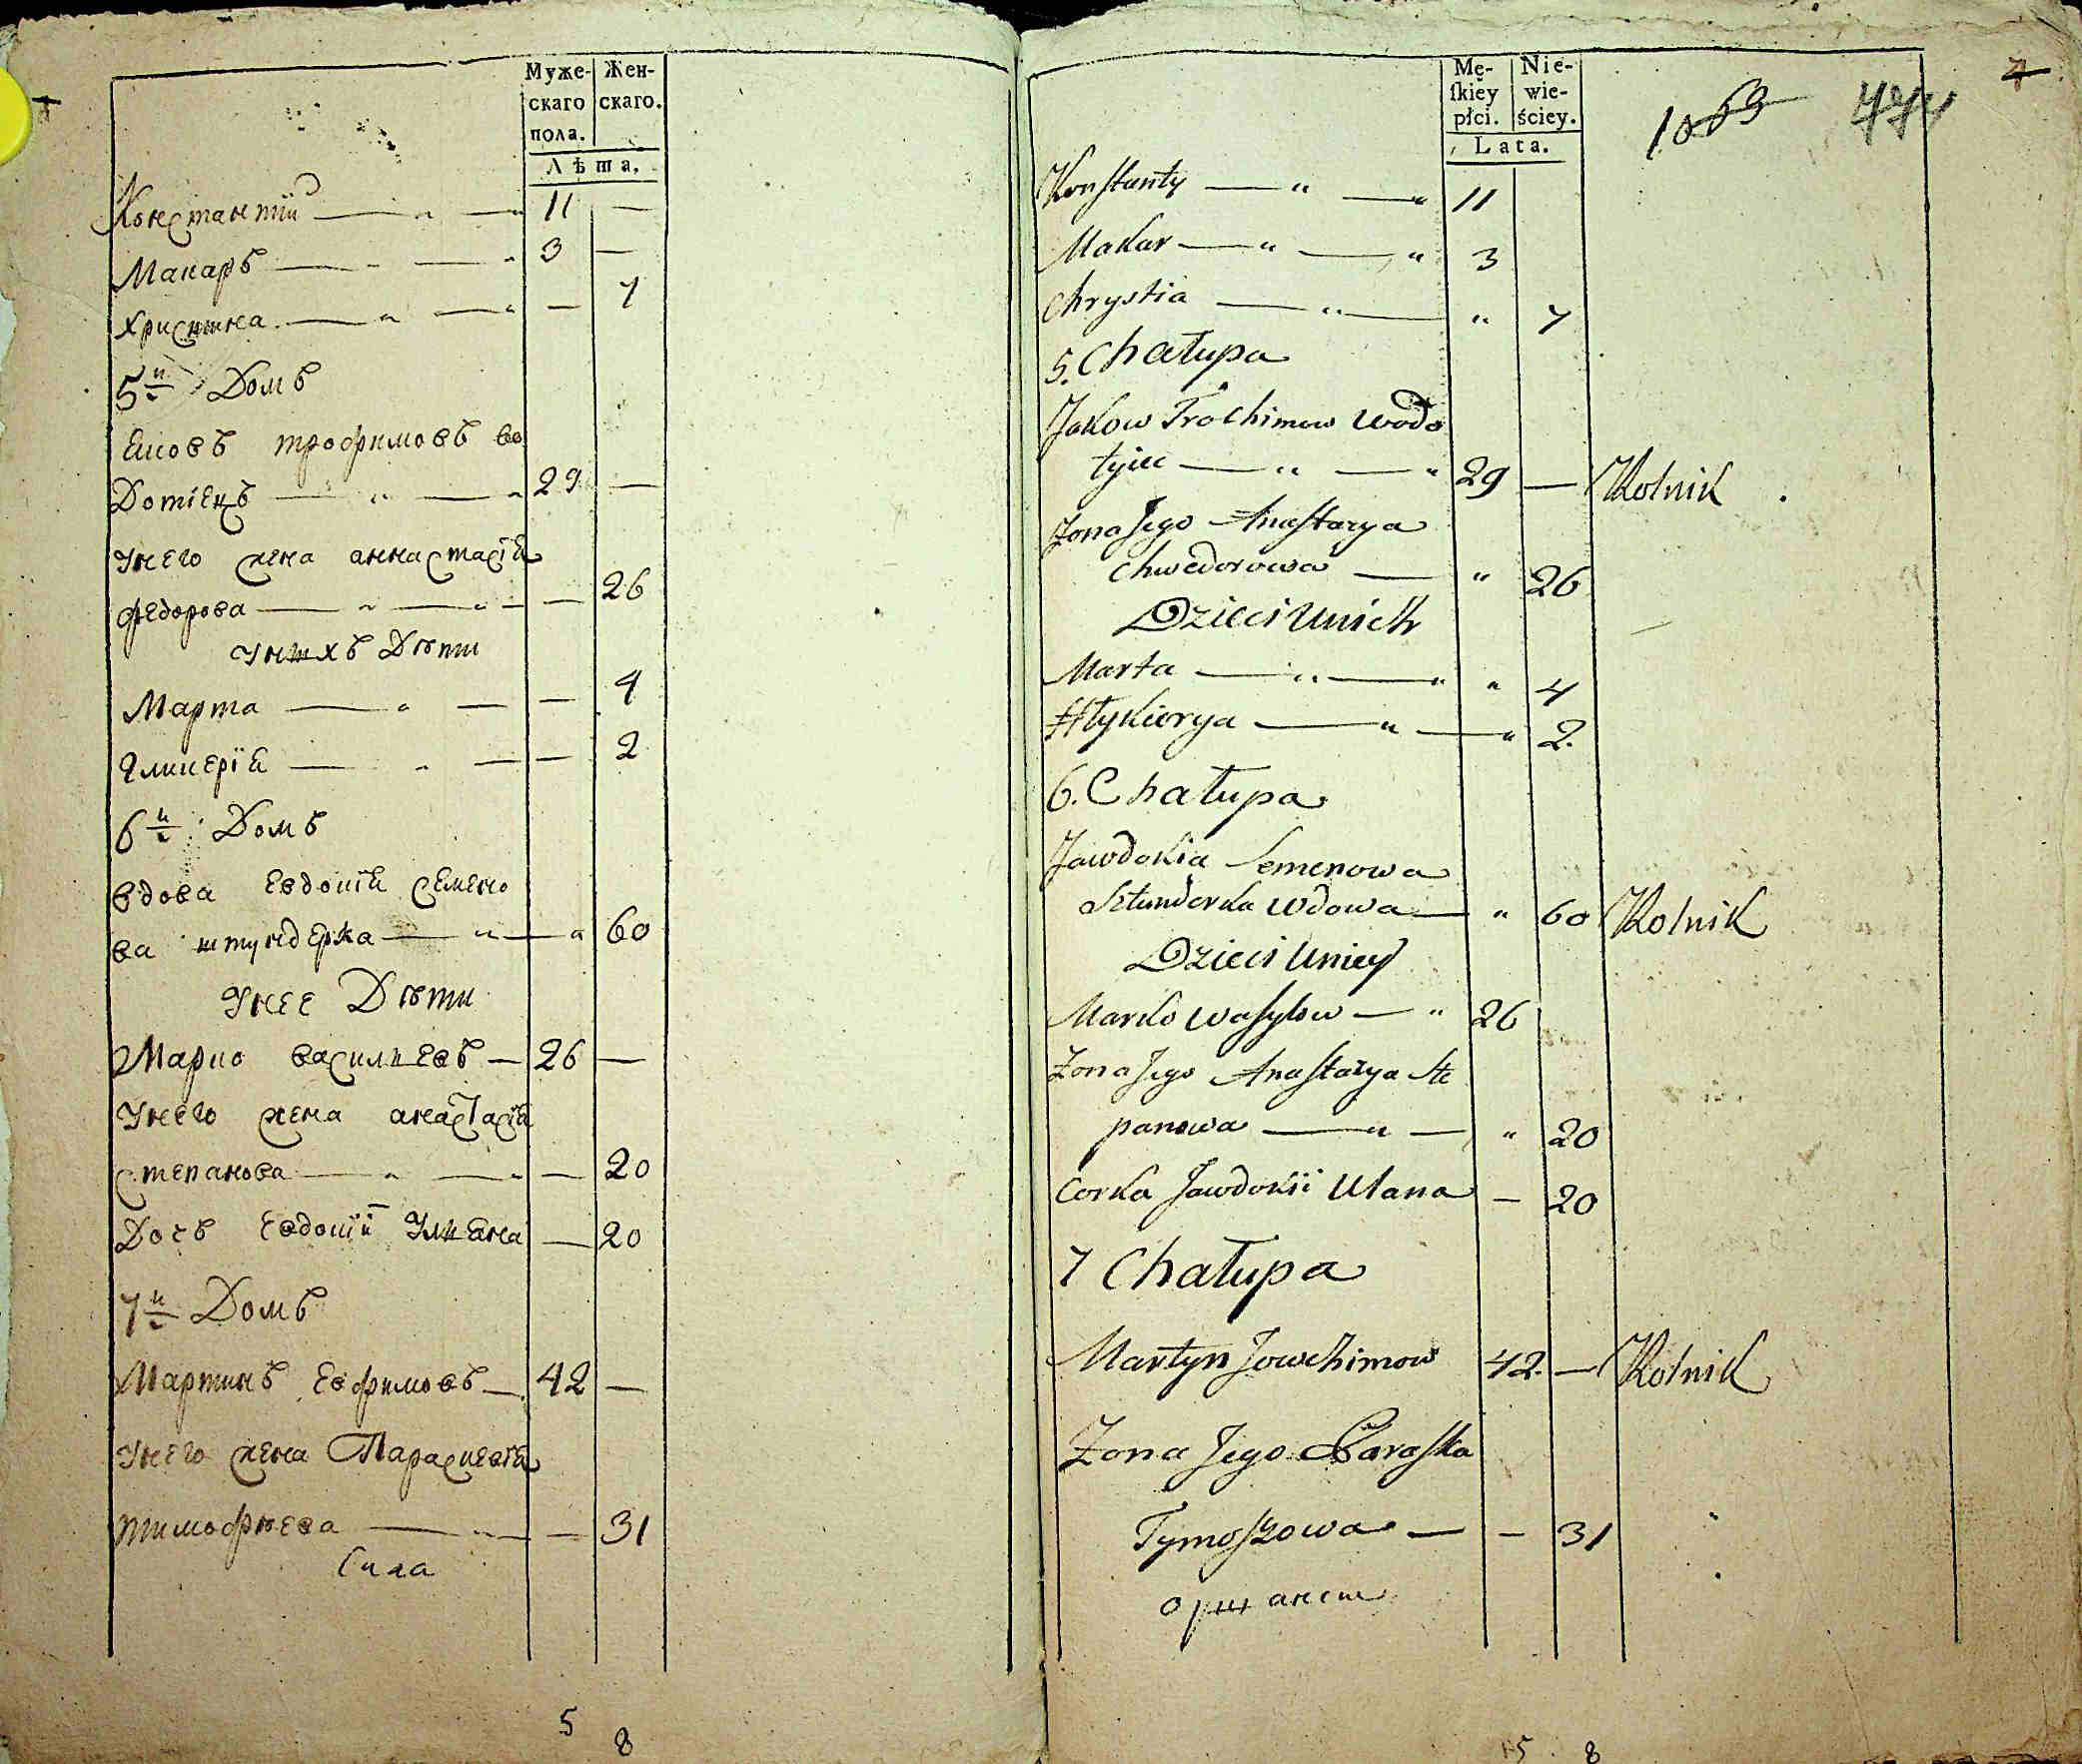 Муже- Жен-
скаго скаго.
пола.
Лѣта.
Константїй — „ — „ 11 —
Макаръ — „ — „ 3 —
Христина — „ — „ — 7
5й Домъ
Ековъ трофимовъ во
Дотіецъ — „ — „ 29 —
Унего жена аннастасїя
федорова — „ — „ — 26
Унихъ Дѣти
Марта — „ — — 4
Гликерїя — „ — — 2
6й Домъ
вдова Евдокїя семено
ва штундерка — „ — „ 60
Унее Дѣти
Марко васильевъ — 26 —
Унего жена анастасїя
степанова — „ — „ — 20
Дочь Евдокїи Ульяна — 20
7й Домъ
Мартинъ Евфимовъ — 42 —
Унего жена Параскевїя
тимофѣева — „ — 31
5 8
Mę- Nie-
skiey wie-
płci. ściey.
Lata.
1063
7
Konstanty — „ — „ 11
Makar — „ — „ 3
Chrystia — „ — „ 7
5. Chałupa
Jakow Trochimow Wodo
tyiec — „ — „ 29 — Rolnik
Zona Jego Anastazya
Chwedorowa — „ 26
Dzieci Unich
Marta — „ — „ „ 4
Hłykierya — „ — „ 2.
6. Chałupa
Jawdokia Semenowa
Sztunderka Wdowa — „ 60 Rolnik
Dzieci Uniey
Marko Wasylow — „ 26
Zona Jego Anastazya Ste
panowa — „ — „ 20
Corka Jawdokii Ulana — 20
7 Chałupa
Martyn Jowchimow 42. — Rolnik
Zona Jego Paraska
Tymoszowa — — 31
5 8